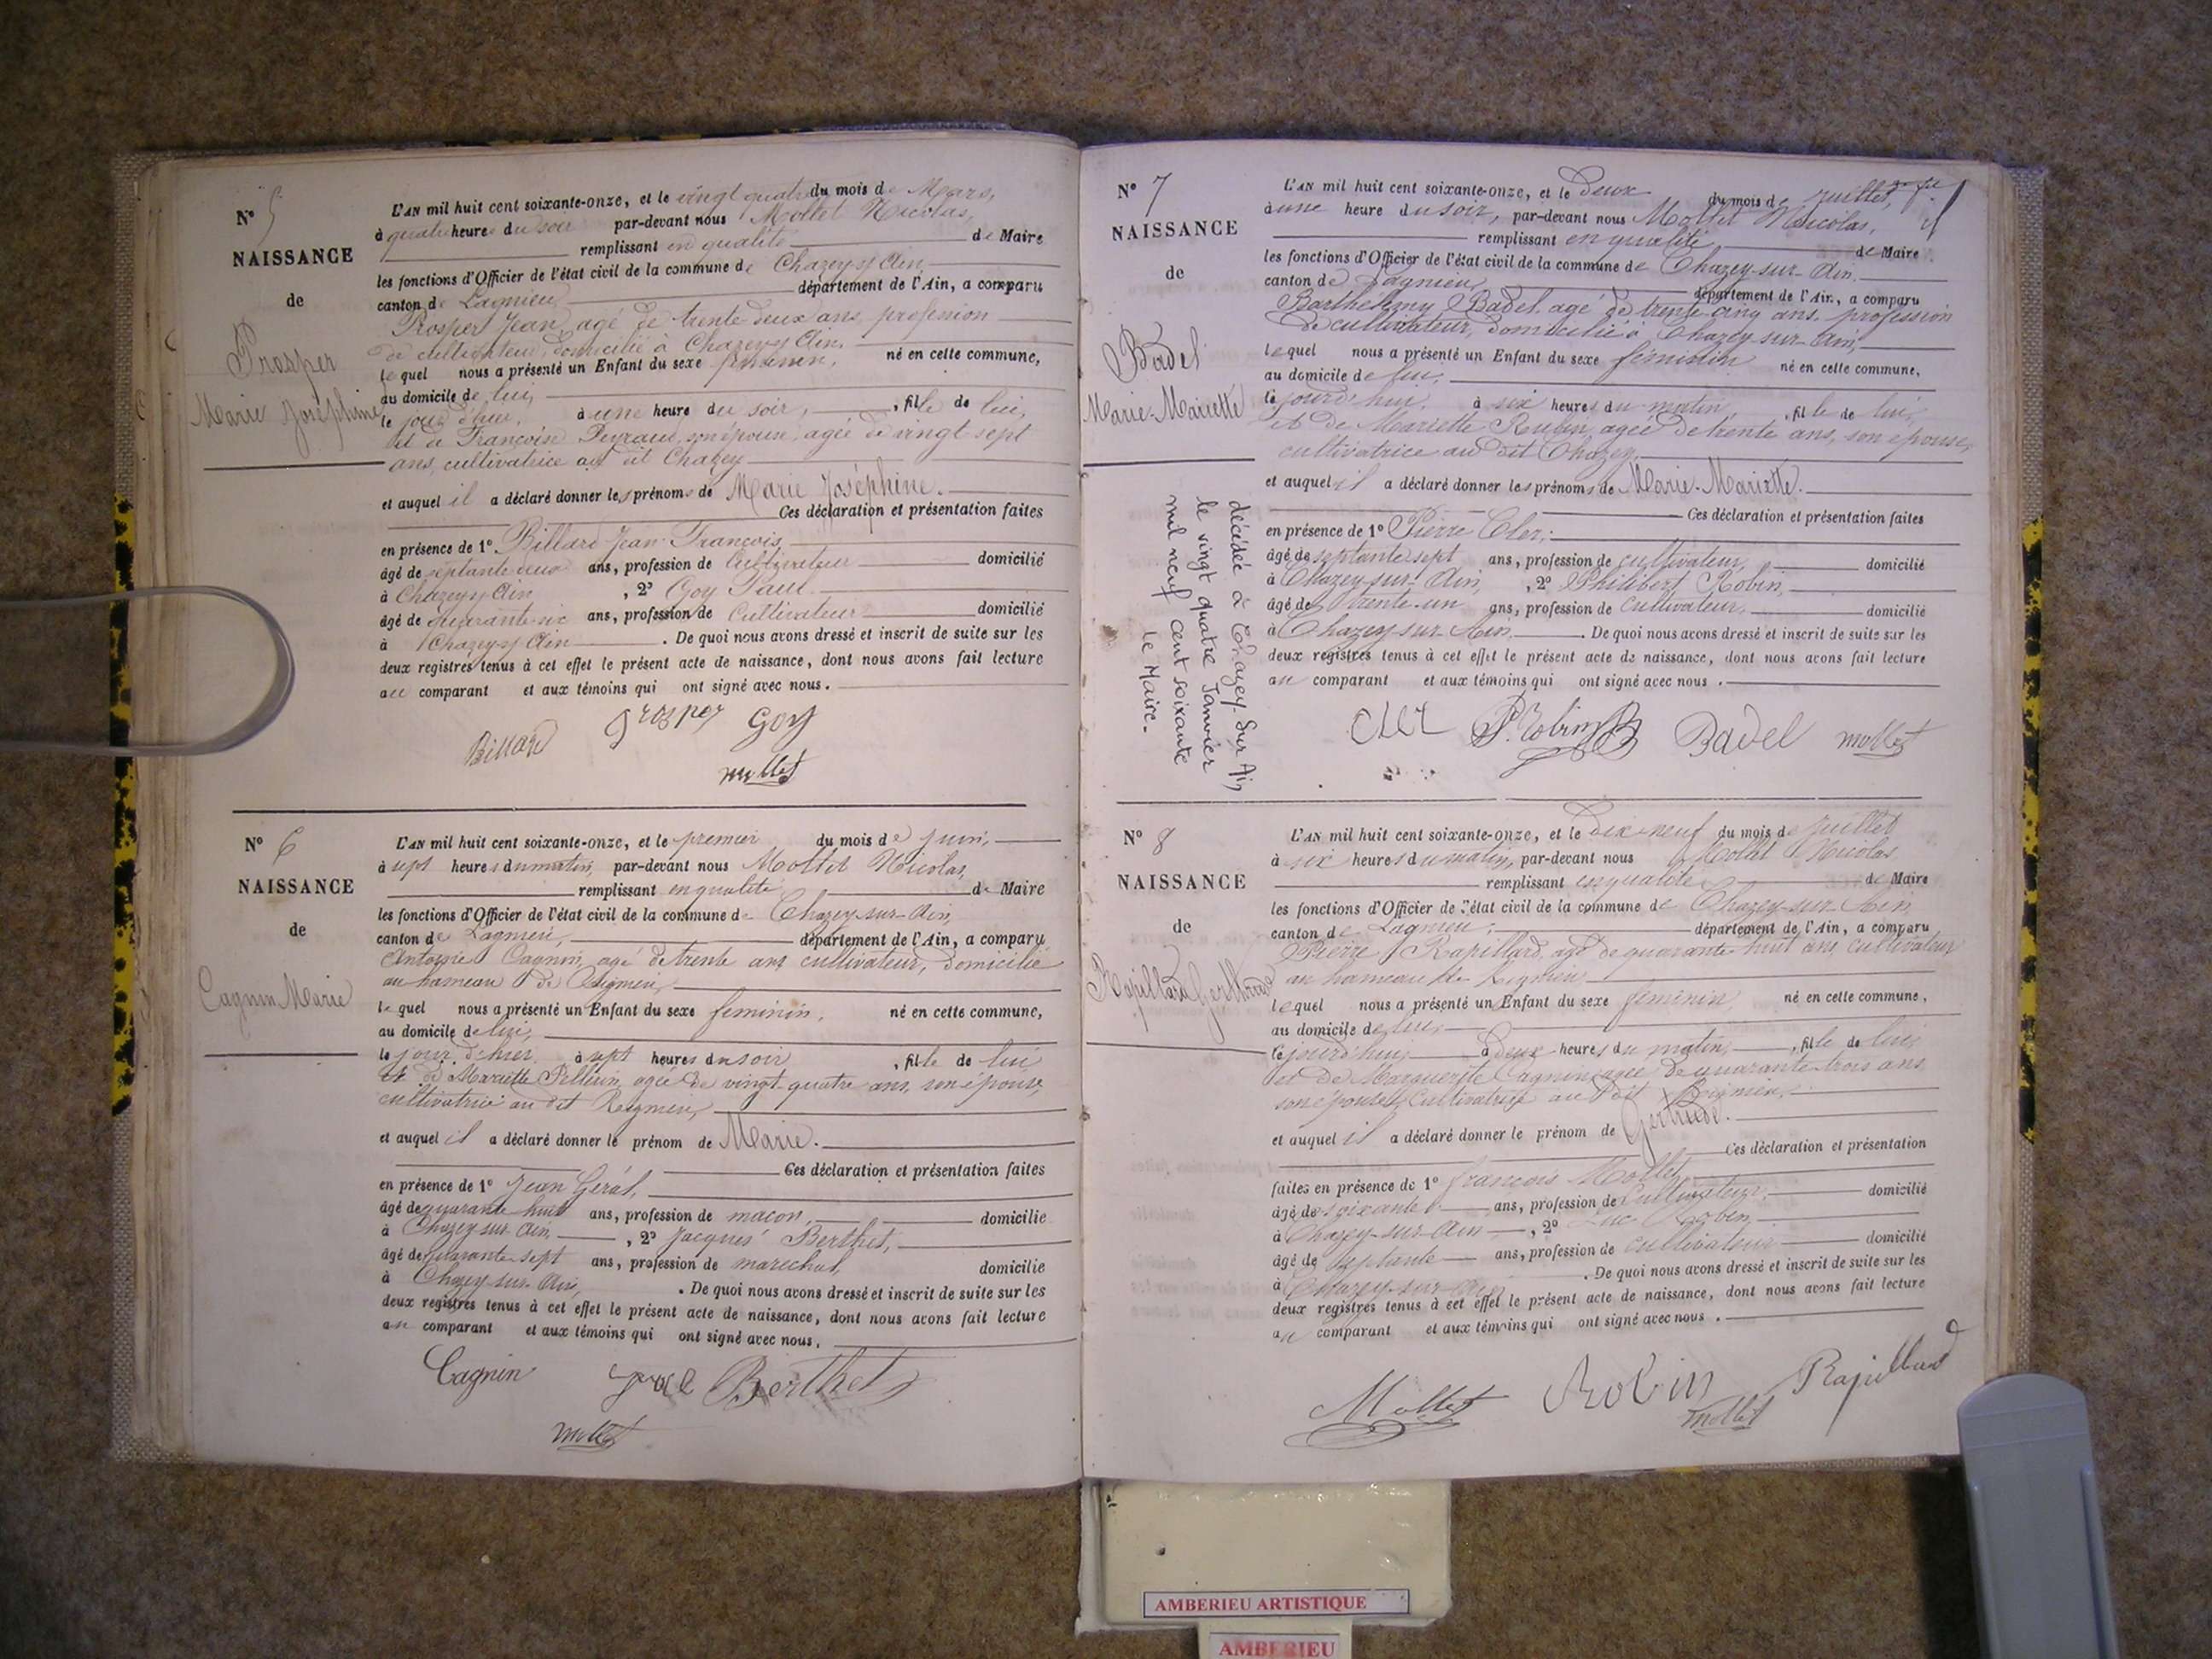 N° 5
NAISSANCE
de
Prosper
Marie Joséphine
L'AN mil huit cent soixante-onze, et le vingt quatre du mois de Mars,
à quatre heures du soir par-devant nous Mollet Nicolas,
remplissant en qualité de Maire
les fonctions d'Officier de l'état civil de la commune de Chazey s/ Ain
canton de Lagnieu département de l'Ain, a comparu
Prosper Jean, agé de trente deux ans, profession
de cultivateur, domicilié à Chazey s/ Ain,
lequel nous a présenté un Enfant du sexe féminin, né en cette commune,
au domicile de lui,
le jour d'hier, à une heure du soir, , fille de lui,
et de Françoise Peyraud, son épouse, agée de vingt sept
ans, cultivatrice au dit Chazey
et auquel il a déclaré donner les prénoms de Marie Joséphine.
Ces déclaration et présentation faites
en présence de 1° Billard Jean François,
âgé de septante deux ans, profession de Cultivateur domicilié
à Chazey s/ Ain , 2° Goy Paul
âgé de ans, profession de Cultivateur domicilié
à Chazey s/ Ain . De quoi nous avons dressé et inscrit de suite sur les
deux registres tenus à cet effet le présent acte de naissance, dont nous avons fait lecture
au comparant et aux témoins qui ont signé avec nous.
Billard Prosper Goy
Mollet
N° 6
NAISSANCE
de
Cagnin Marie
L'AN mil huit cent soixante-onze, et le premier du mois de juin,
à sept heures du matin, par-devant nous Mollet Nicolas,
remplissant en qualité de Maire
les fonctions d'Officier de l'état civil de la commune de Chazey-sur-Ain,
canton de Lagnieu, département de l'Ain, a comparu
Antoine Cagnin, agé de trente ans cultivateur, domicilié
au hameau de Rigneu,
lequel nous a présenté un Enfant du sexe feminin, né en cette commune,
au domicile de lui,
le jour d'hier à sept heures du soir , fille de lui
et de Mariette Pellerin, agée de vingt-quatre ans, son épouse,
cultivatrice au dit Rigneu,
et auquel il a déclaré donner le prénom de Marie.
Ces déclaration et présentation faites
en présence de 1° Jean Géral,
âgé de quarante huit ans, profession de maçon, domicilié
à Chazey-sur-Ain, , 2° Jacques Berthet,
âgé de quarante-sept ans, profession de marechal, domicilié
à Chazey-sur-Ain, . De quoi nous avons dressé et inscrit de suite sur les
deux registres tenus à cet effet le présent acte de naissance, dont nous avons fait lecture
au comparant et aux témoins qui ont signé avec nous.
Cagnin Berthet
Mollet
N° 7
NAISSANCE
de
Badel
Marie-Mariette
décédée à Chazey-Sur Ain
le vingt quatre Janvier
mil neuf cent soixante
Le Maire.
L'AN mil huit cent soixante-onze, et le Deux du mois de juillet,
à une heure du soir, par-devant nous Mollet Nicolas,
remplissant en qualité de Maire
les fonctions d'Officier de l'état civil de la commune de Chazey-sur-Ain
canton de Lagnieu, département de l'Ain, a comparu
Barthelemy Badel agé de trente cinq ans, profession
de cultivateur, domicilié à Chazey-sur-Ain,
lequel nous a présenté un Enfant du sexe féminin né en cette commune,
au domicile de lui,
le jourd'hui, à six heures du matin, , fille de lui,
et de Mariette Rubin, agée de trente ans, son épouse,
cultivatrice au dit Chazey,
et auquel il a déclaré donner les prénoms de Marie-Mariette.
Ces déclaration et présentation faites
en présence de 1° Pierre Cler,
âgé de septante sept ans, profession de cultivateur, domicilié
à Chazey-sur-Ain, , 2° Philibert Robin,
âgé de trente-un ans, profession de cultivateur, domicilié
à Chazey-sur-Ain . De quoi nous avons dressé et inscrit de suite sur les
deux registres tenus à cet effet le présent acte de naissance, dont nous avons fait lecture
au comparant et aux témoins qui ont signé avec nous.
Cler P. Robin Badel Mollet
N° 8
NAISSANCE
de
Rapillard Gerthrude
L'AN mil huit cent soixante-onze, et le Dix-neuf du mois de juillet
à six heures du matin, par-devant nous Mollet Nicolas
remplissant en qualité de Maire
les fonctions d'Officier de l'état civil de la commune de Chazey-sur-Ain,
canton de Lagnieu, département de l'Ain, a comparu
Pierre Rapillard, agé de quarante huit ans, cultivateur
au hameau de Rigneu
lequel nous a présenté un Enfant du sexe feminin, né en cette commune,
au domicile de lui,
le jourd'hui, à deux heures du matin, , fille de lui,
et de Marguerite Cagnin, agée de quarante trois ans
son épouse, cultivatrice au dit Rigneu,
et auquel il a déclaré donner le prénom de Gertrude.
Ces déclaration et présentation
faites en présence de 1° François Mollet,
âgé de soixante ans, profession de cultivateur, domicilié
à Chazey-sur-Ain , 2° Luc Robin
âgé de septante ans, profession de cultivateur domicilié
à Chazey-sur-Ain . De quoi nous avons dressé et inscrit de suite sur les
deux registres tenus à cet effet le présent acte de naissance, dont nous avons fait lecture
au comparant et aux témoins qui ont signé avec nous.
Mollet Robin Rapillard
Mollet
AMBERIEU ARTISTIQUE
AMBERIEU